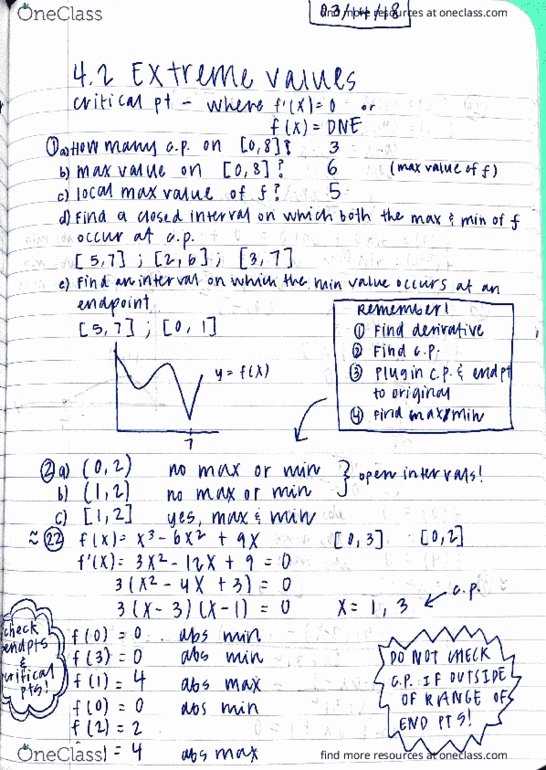 OneClass
03/14/18
find more resources at oneclass.com
4.2 Extreme values
critical pt - where f'(x)=0 or
f(x) = DNE
① a) How many c.p. on [0,8]? 3
b) max value on [0,8]? 6 (max value of f)
c) local max value of f? 5
d) Find a closed interval on which both the max & min of f
occur at c.p.
[5,7] ; [2,6] ; [3,7]
e) Find an interval on which the min value occurs at an
endpoint
[5,7] ; [0,1]
Remember!
① Find derivative
② Find c.p.
③ Plug in c.p. & endpt
to original
④ Find max/min
y = f(x)
7
② a) (0,2) no max or min
b) (1,2) no max or min
} open intervals!
c) [1,2] yes, max & min
≈ ㉒ f(x) = x³ - 6x² + 9x [0,3] [0,2]
f'(x) = 3x² - 12x + 9 = 0
3(x² - 4x + 3) = 0
3(x - 3)(x - 1) = 0 x = 1, 3 c.p.
check
endpts
&
critical
pts!
f(0) = 0 abs min
f(3) = 0 abs min
f(1) = 4 abs max
f(0) = 0 abs min
f(2) = 2
) = 4 abs max
DO NOT CHECK
C.P. IF OUTSIDE
OF RANGE OF
END PTS!
OneClass
find more resources at oneclass.com